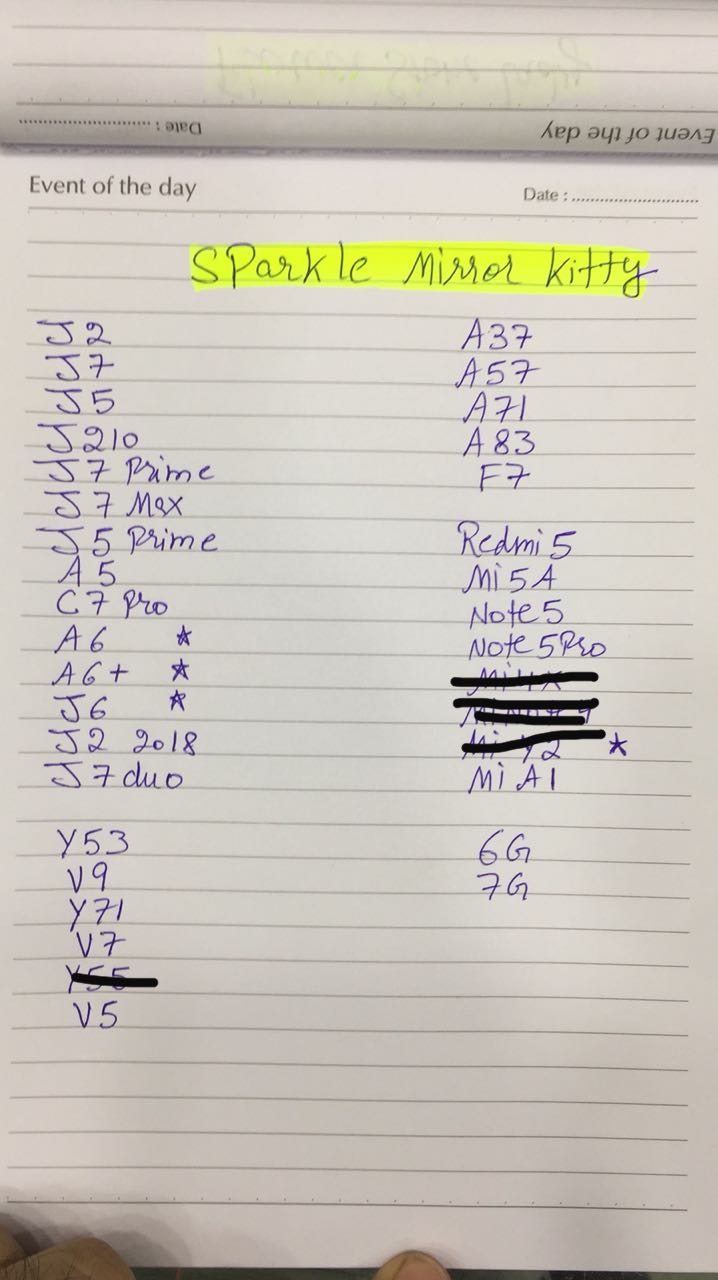 Event of the day
Date :
Event of the day
Date :
SParkle Mirror Kitty
J2
J7
J5
J210
J7 Prime
J7 Max
J5 Prime
A5
C7 Pro
A6 ★
A6+ ★
J6 ★
J2 2018
J7 duo
Y53
V9
Y71
V7
Y55
V5
A37
A57
A71
A83
F7
Redmi 5
Mi 5A
Note 5
Note 5 Pro
Mi Y2 ★
Mi A1
6G
7G